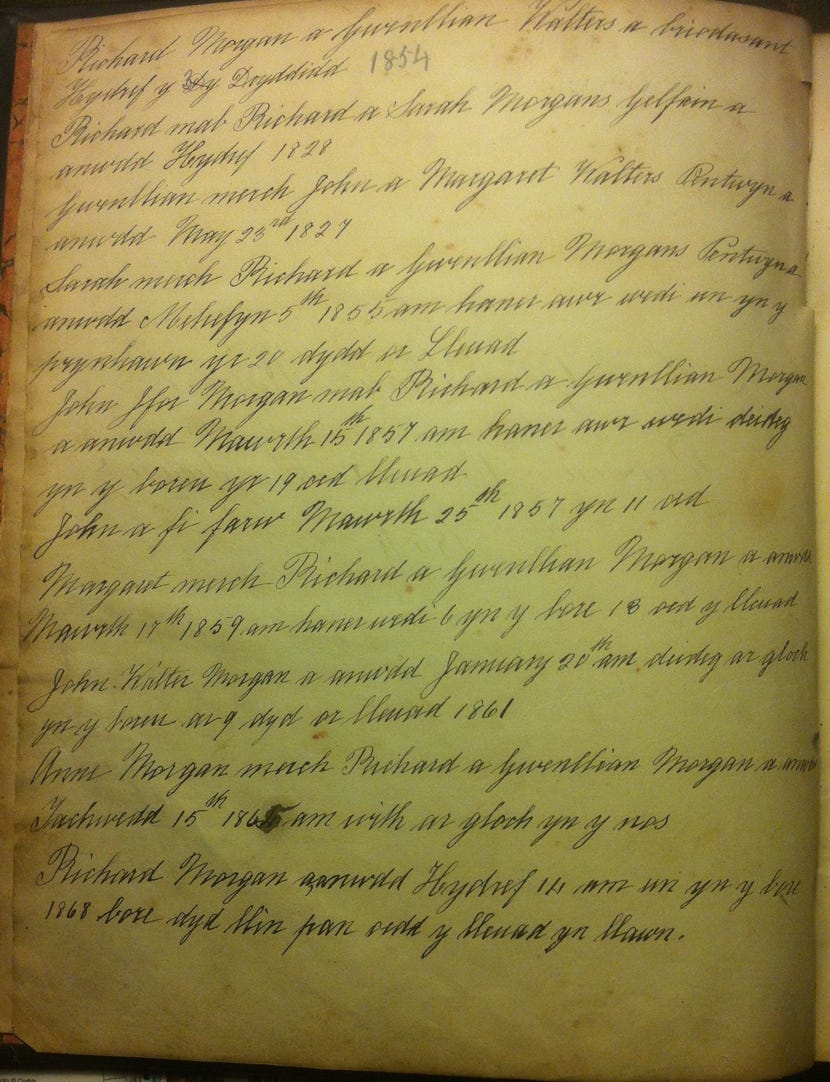 Richard Morgan a Gwenllian Walters a briodasant
Hydref y 3dy Dayddidd 1854
Richard mab Richard a Sarah Morgans Gelfain a
anwdd Hydref 1828
Gwenllian merch John a Margaret Walters Pentwyn a
anwdd May 23rd 1827
Sarah merch Richard a Gwenllian Morgans Pentwyn a
anwdd Mehefyn 5th 1855 am haner awr wedi un yn y
prynhawn yr 20 dydd or Lleuad
John Ifor Morgan mab Richard a Gwenllian Morgan
a anwdd Mawrth 15th 1857 am haner awr wedi deideg
yn y boreu yr 19 oed lleuad
John a fi farw Mawrth 25th 1857 yn 11 oed
Margaret merch Richard a Gwenllian Morgan a anwdd
Mawrth 17th 1859 am haner wedi 6 yn y bore 13 oed y lleuad
John Walter Morgan a anwdd January 20th am deideg ar gloch
yn y boreu ar 9 dyd or lleuad 1861
Anne Morgan merch Richard a Gwenllian Morgan a
Tachwedd 15th 1865 am with ar gloch yn y nos
Richard Morgan a anwdd Hydref 14 am un yn y bore
1868 bore dyd llin pan oedd y lleuad yn llawn.